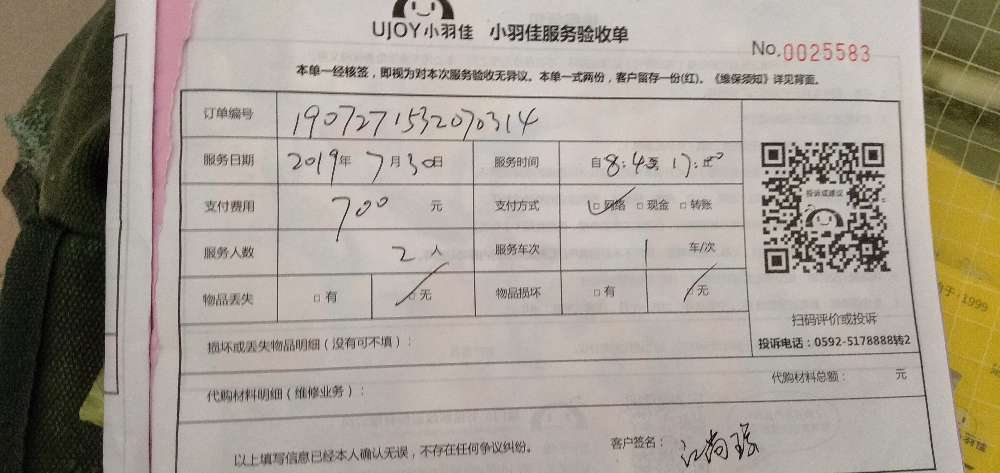 UJOY小羽佳 小羽佳服务验收单
No.0025583
本单一经核签，即视为对本次服务验收无异议。本单一式两份，客户留存一份(红)。《维保须知》详见背面。
订单编号 1907271532070314
服务日期 2019年7月30日 服务时间 自8:45至17:00止
支付费用 700 元 支付方式 □网络 □现金 □转账
投诉或建议
服务人数 2人 服务车次 1 车/次
物品丢失 □有 □无 物品损坏 □有 □无
扫码评价或投诉
投诉电话：0592-5178888转2
损坏或丢失物品明细（没有可不填）：
代购材料明细（维修业务）： 代购材料总额： 元
以上填写信息已经本人确认无误，不存在任何争议纠纷。 客户签名：江尚
于·1999